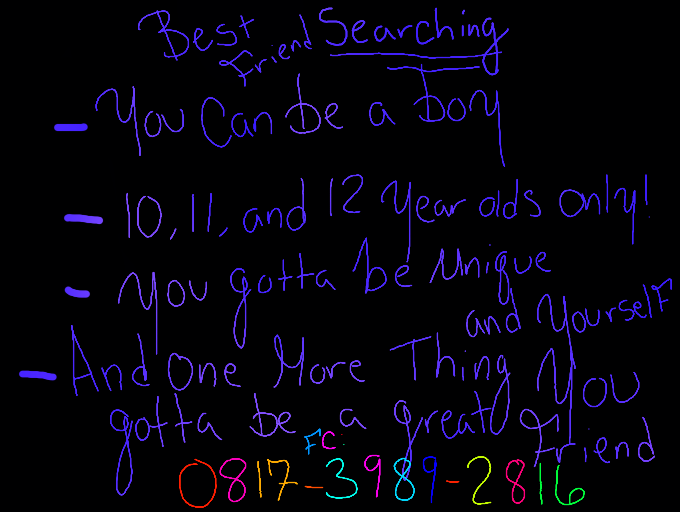 Best Friend Searching
- You Can be a boy
- 10, 11, and 12 Year olds only!
- You gotta be Unique
and Yourself
- And One More Thing You
gotta be a great Friend
FC:
0817-3989-2816